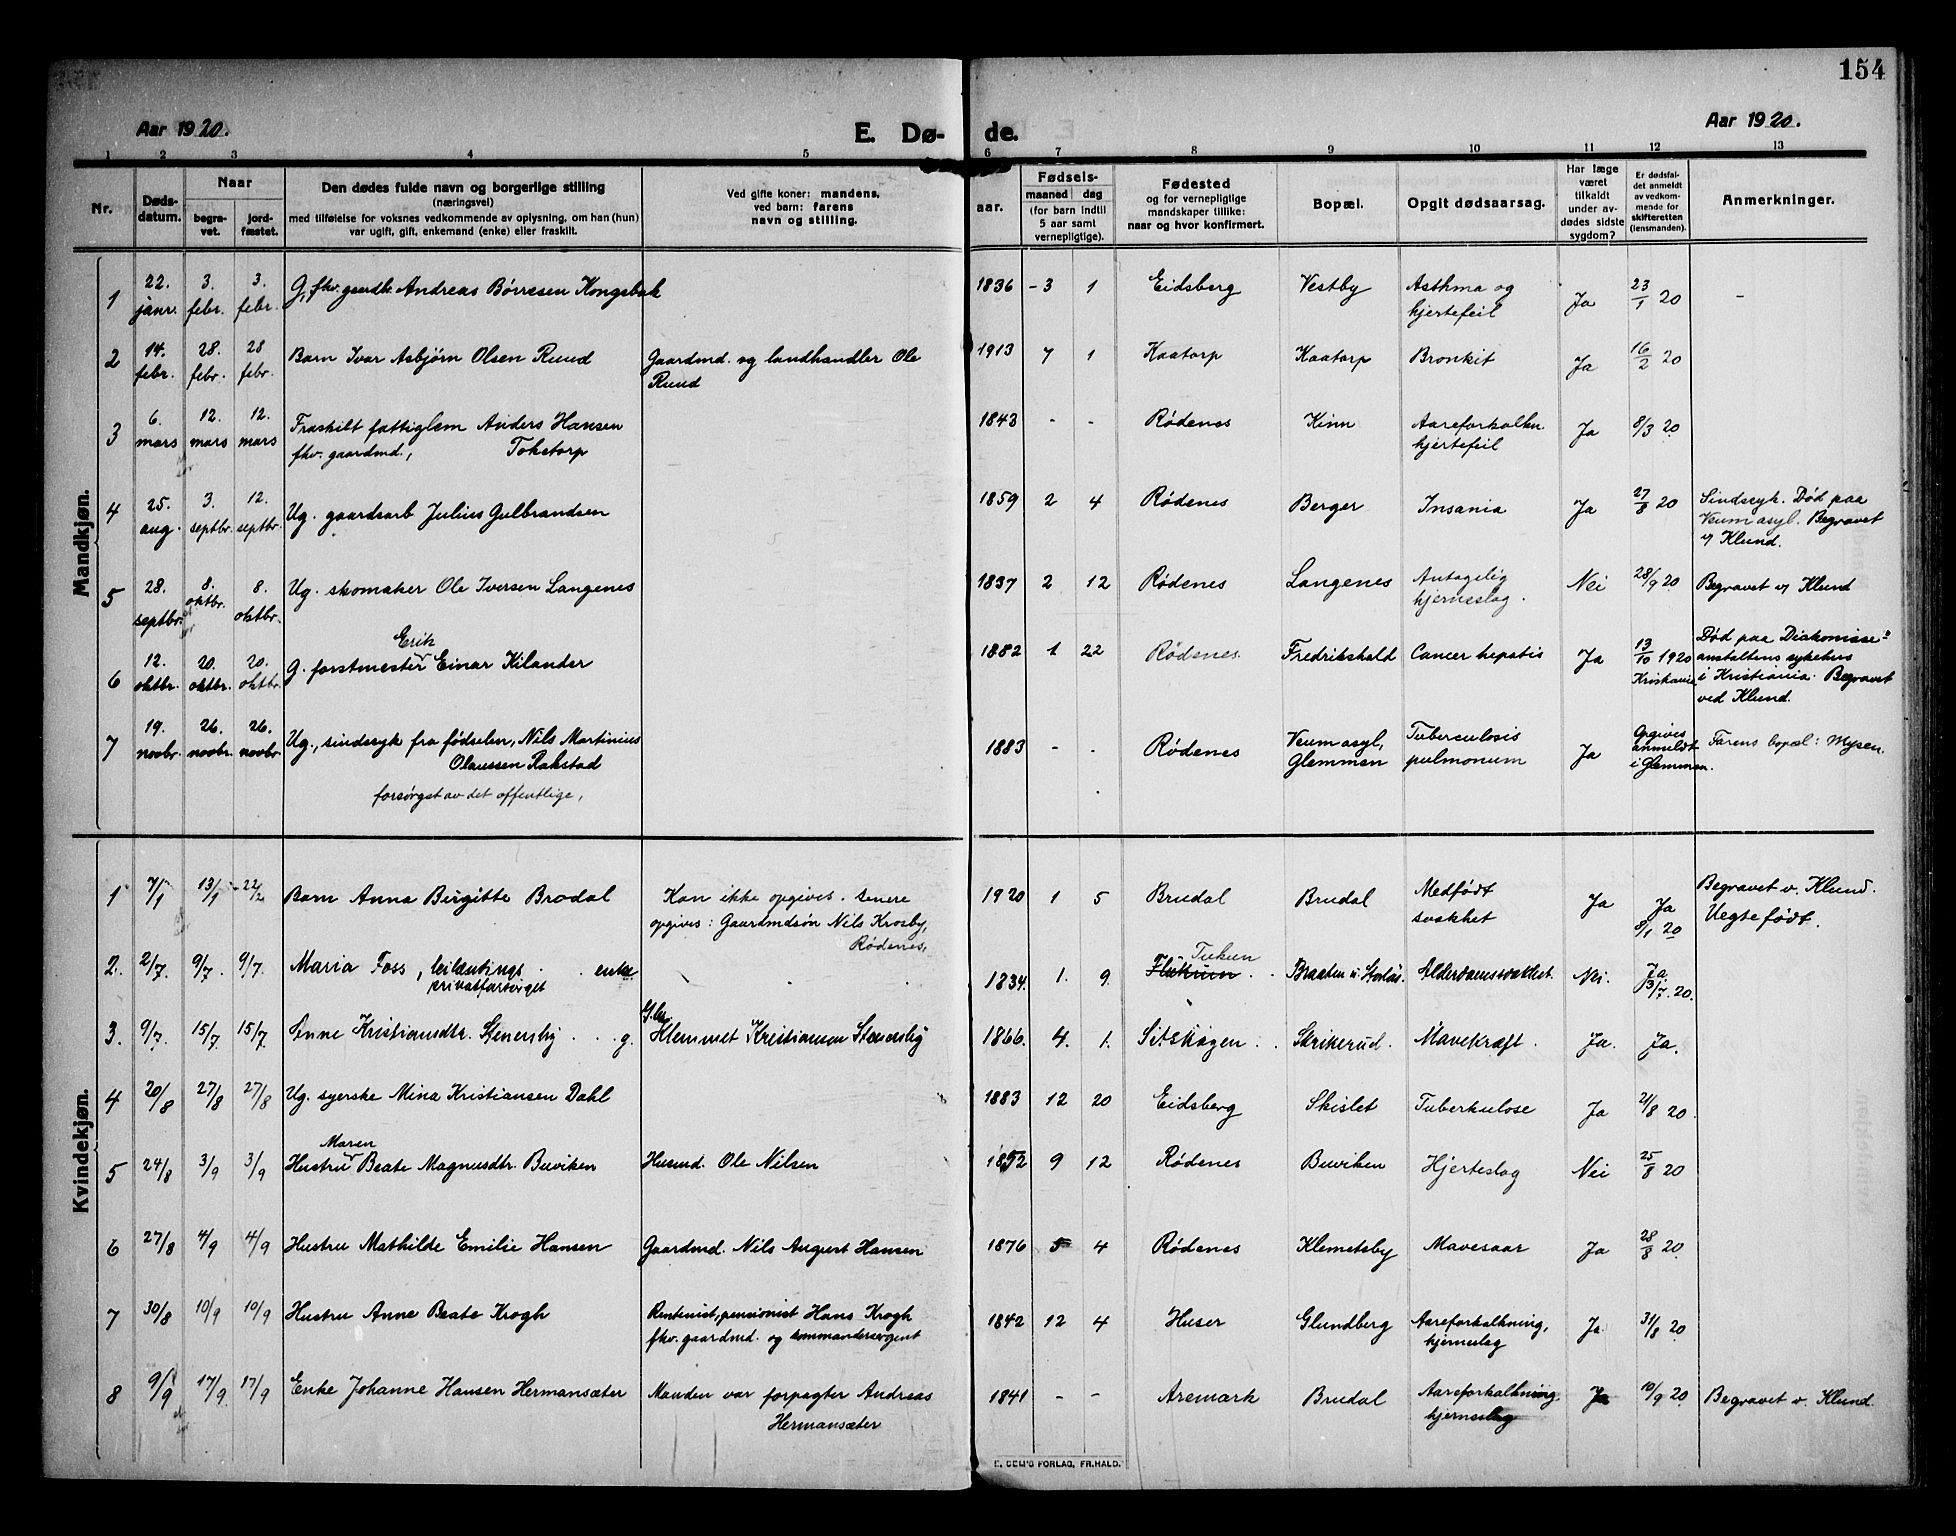 154
Aar 1920.
E. Dø-
de.
Aar 1920.
1 2 3 4 5 6 7 8 9 10 11 12 13
Nr.
Døds-
datum.
Naar
begra-
vet.
jord-
fæstet.
Den dødes fulde navn og borgerlige stilling
(næringsvei)
med tilføielse for voksnes vedkommende av oplysning, om han (hun)
var ugift, gift, enkemand (enke) eller fraskilt.
Ved gifte koner: mandens,
ved barn: farens
navn og stilling.
Fødsels-
aar.
maaned dag
(for barn indtil
5 aar samt
vernepligtige).
Fødested
og for vernepligtige
mandskaper tillike:
naar og hvor konfirmert.
Bopæl.
Opgit dødsaarsag.
Har læge
været
tilkaldt
under av-
dødes sidste
sygdom?
Er dødsfal-
det anmeldt
av vedkom-
mende for
skifteretten
(lensmanden).
Anmerkninger.
Mandkjøn.
1 22. janr. 3. febr. 3. febr. G, fhv. gaardbr. Andreas Børresen Kongsbak 1836 - 3 1 Eidsberg Vestby Asthma og hjertefeil Ja 23/1 20 -
2 14. febr. 28. febr. 28 febr. Barn Ivar Asbjørn Olsen Ruud Gaardmd. og landhandler Ole Ruud 1913 7 1 Kaatorp Kaatorp Bronkit Ja 16/2 20
3 6. mars 12. mars 12. mars Fraskilt fattiglem Anders Hansen Tokstorp fhv. gaardmd., 1843 - - Rødenes Kinn Aareforkalkn. hjertefeil Ja 8/3 20
4 25. aug. 3. septbr. 12. septbr. Ug. gaardsarb Julius Gulbrandsen 1859 2 4 Rødenes Berger Insania Ja 27/8 20 Sindssyk. Død paa Veum asyl. Begravet v/ Klund.
5 28. septbr. 8. oktbr. 8. oktbr. Ug. skomaker Ole Iversen Langenes 1837 2 12 Rødenes Langenes Antagelig hjerneslag. Nei 28/9 20 Begravet v/ Klund
6 12. oktbr. 20. oktbr. 20. oktbr. G. forstmester Erik Einar Kilander 1882 1 22 Rødenes Fredrikshald Cancer hepatis Ja 13/10 1920 Kristiania Død paa Diakonisse- anstaltens sykehus i Kristiania. Begravet ved Klund.
7 19. novbr. 26. novbr. 26. novbr. Ug., sindssyk fra fødselen, Nils Martinius Olaussen Rakstad forsørget av det offentlige, 1883 - - Rødenes Veum asyl, Glemmen Tuberculosis pulmonum Ja Opgives anmeldt i Glemmen. Farens bopæl: Mysen.
Kvindekjøn.
1 7/1 13/1 - 22/2 Barn Anna Birgitte Brodal Kan ikke opgives. Senere opgives: Gaardmdsøn Nils Krosby, Rødenes, 1920 1 5 Brudal Brudal Medfødt svakhet Ja Ja 8/1 20 Begravet v. Klund. Uegte født.
2. 2/7. 9/7. 9/7. Maria Foss, leilændings enke privatforsørget 1834. 1. 9. Tukun Braaten u. Alderdomssvakhet. Nei. Ja 3/7. 20.
3. 9/7. 15/7 15/7 Anne Kristiansdtr. Stenersby . . g. Klemmet Kristiansen Stenersby 1866. 4. 1. Sitskogen . Skrikerud. Mavekræft . Ja. Ja.
4 20/8 27/8 27/8 Ug. syerske Mina Kristiansen Dahl 1883 12 20 Eidsberg Skislet Tuberkulose Ja 21/8 20.
5 24/8 3/9 3/9 Hustru Maren Beate Magnusdtr. Buviken Husmd. Ole Nilsen 1852 9 12 Rødenes Buviken Hjerteslag Nei 25/8 20
6 27/8 4/9 4/9 Hustru Mathilde Emilie Hansen Gaardmd. Nils August Hansen 1876 5 4 Rødenes Klemetsby Mavesaar Ja 28/8 20.
7 30/8 10/9 10/9 Hustru Anne Beate Krogh Rentenist, pensionist Hans Krogh fhv. gaardmd. og kommandersergent 1842 12 4 Huser Glundberg Aareforkalkning, hjerneslag Ja 31/8 20
8 9/9 17/9 17/9 Enke Johanne Hansen Hermansæter Manden var forpagter Andreas Hermansæter 1841 - - Aremark Brudal Aareforkalkning hjerneslag Ja 10/9 20. Begravet v. Klund.
E. SEM'S FORLAG, FR.HALD.